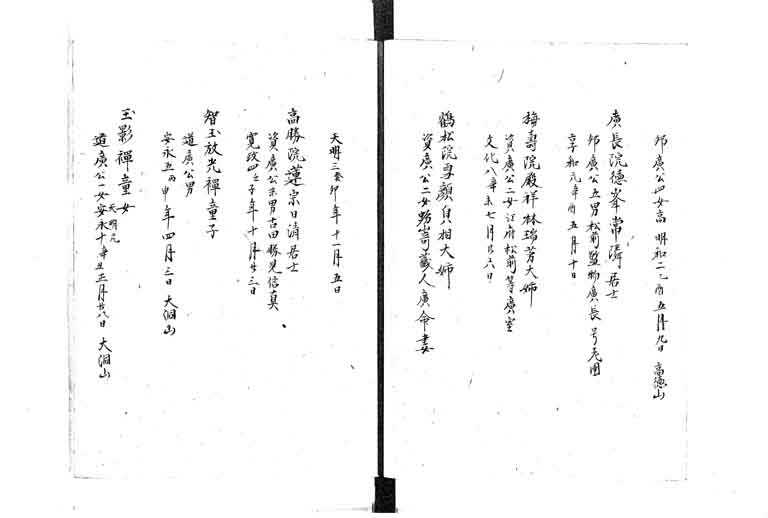 邦廣公四女高 明和二乙酉五月九日 高徳山
廣長院德峯常隣居士
邦廣公五男松前監物廣長号老圃
享和元辛酉五月十日
梅壽院嚴祥林瑞芳大姉
資廣公二女江府松前等廣室
文化八辛未七月廿六日
鶴松院專顏貞相大姉
資廣公二女蛎嵜藏人廣命妻
天明三癸卯年十一月五日
高勝院蓮宗日清居士
資廣公末男古田勝見信真
寛政四壬子年十月廿三日
智玉放光禪童子
道廣公男
安永五丙申年四月三日 大洞山
玉影禪童女
道廣公一女安永十辛丑正月廿八日 大洞山
天明元